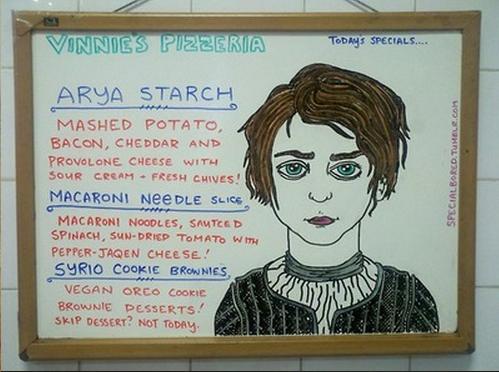 VINNIE'S PIZZERIA
TODAY'S SPECIALS....
ARYA STARCH
MASHED POTATO,
BACON, CHEDDAR AND
PROVOLONE CHEESE WITH
SOUR CREAM + FRESH CHIVES!
MACARONI NEEDLE SLICE
MACARONI NOODLES, SAUTEED
SPINACH, SUN-DRIED TOMATO WITH
PEPPER-JAQEN CHEESE!
SYRIO COOKIE BROWNIES
VEGAN OREO COOKIE
BROWNIE DESSERTS!
SKIP DESSERT? NOT TODAY.
SPECIALBORED.TUMBLR.COM